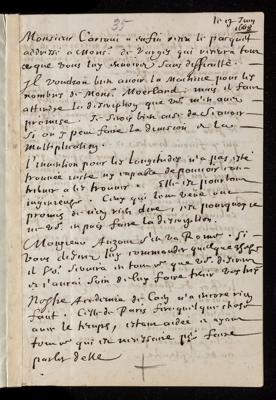 35
le 17 Juin
1668
Monsieur Carcavi a enfin receu le paquet
addressé a Mons. de Varges qui rendra tout
ce que vous luy envoirez sans difficulté.
Il voudroit bien avoir la Machine pour les
nombres de Mons. Moorland; mais il faut
attendre la description que vous m'en avez
promise. Je serois bien aise de sçavoir
si on y peut faire la division et la
multiplication.
L'invention pour les Longitudes n'a pas esté
trouvée juste ny capable de pouvoir con-
tribuer a les trouver. Elle est pourtant
ingenieuse. Ceux qui l'ont veue ont
promis de n'en rien dire, c'est pourquoy je
ne vous en puis faire la description.
Monsieur Auzout s'en va a Rome. Si
vous desirez luy commander quelque chose
il vous servira en tout ce que vous desirerez
et j'aurai soin de luy faire tenir vos lettres
Nostre Academie de Caen n'a encore rien
fait. Celle de Paris fera quelque chose
avec le temps, estant aidée et ayant
tout ce qui est necessaire pour faire
parler d'elle